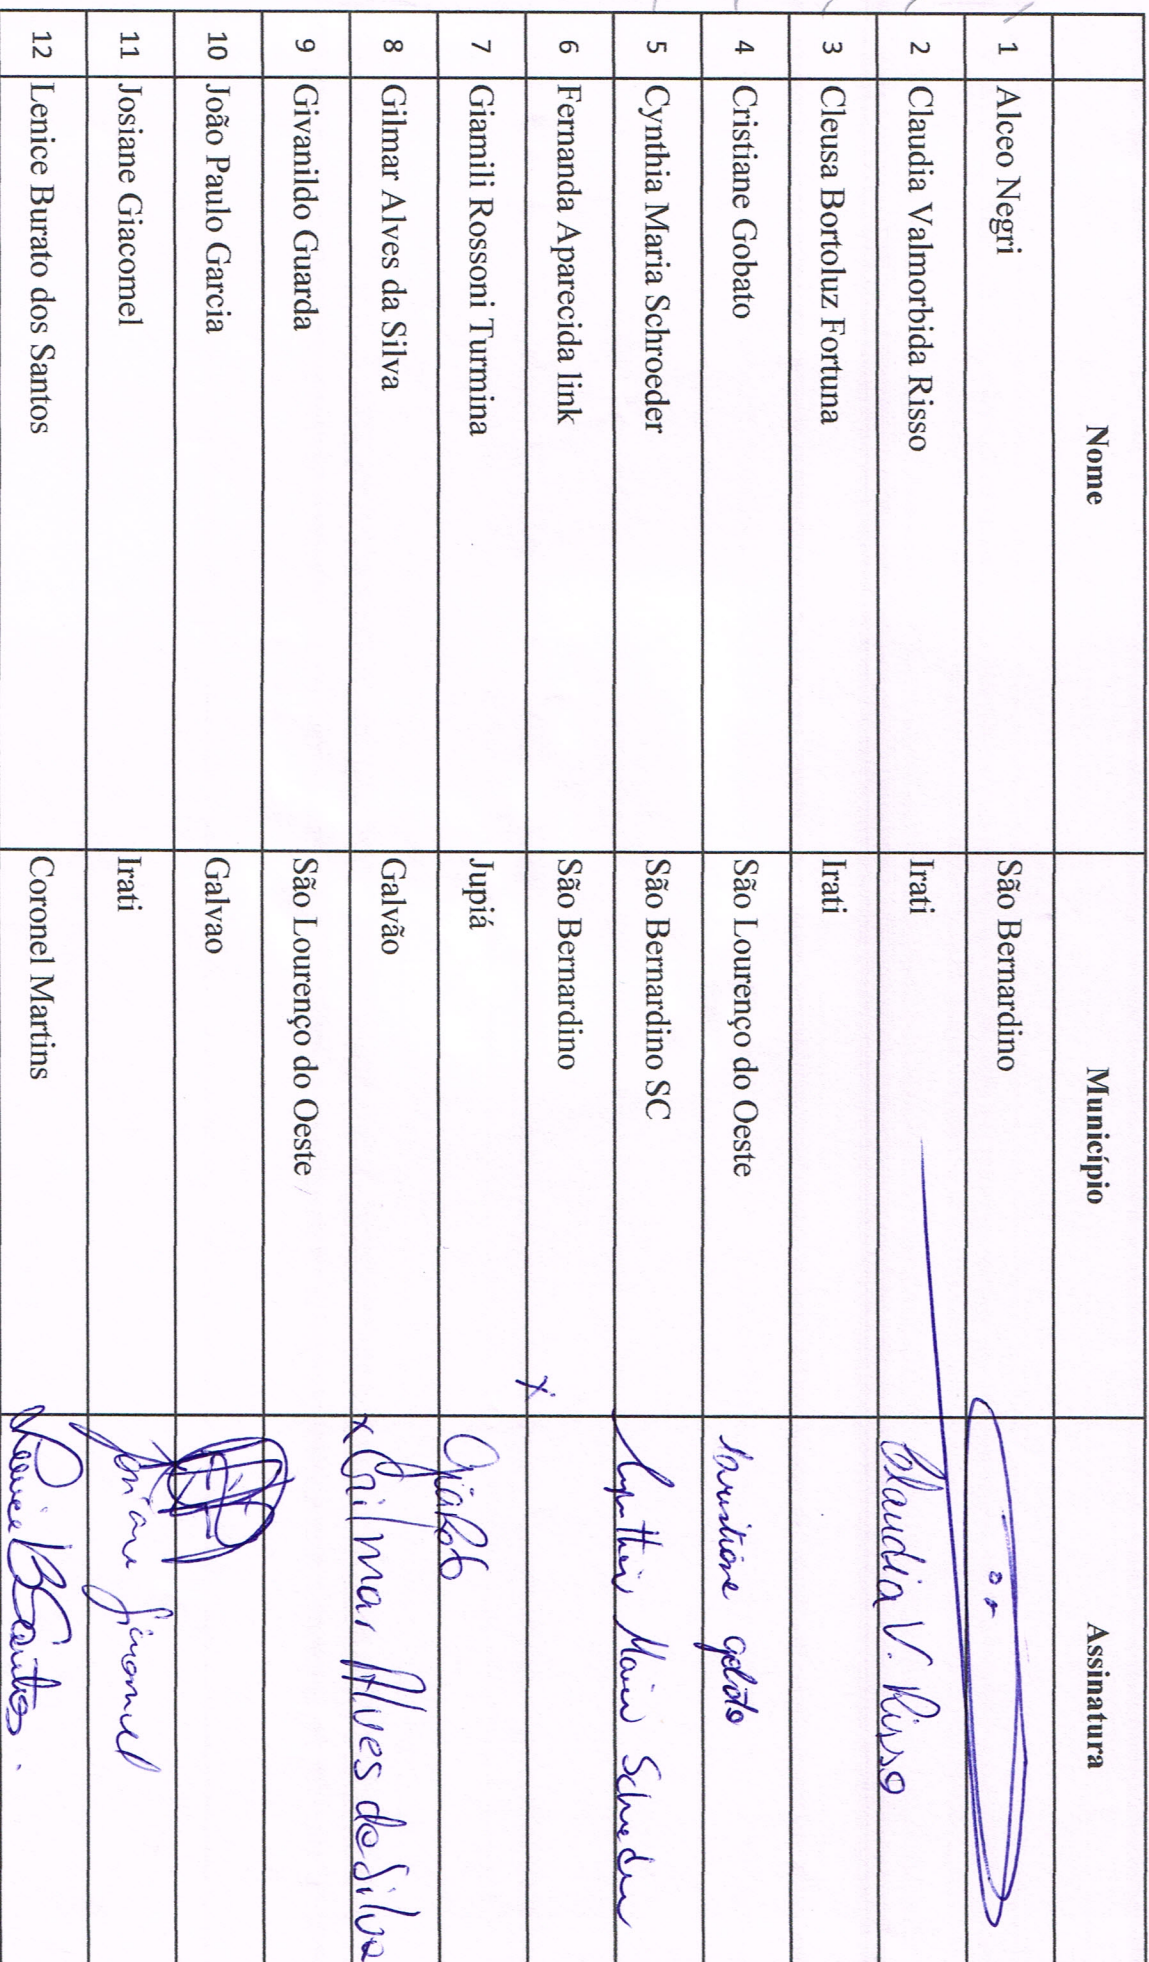 Nome Município Assinatura
1 Alceo Negri São Bernardino
2 Claudia Valmorbida Risso Irati Claudia V. Risso
3 Cleusa Bortoluz Fortuna Irati
4 Cristiane Gobato São Lourenço do Oeste
5 Cynthia Maria Schroeder São Bernardino SC Cynthia Maria
6 Fernanda Aparecida link São Bernardino x
7 Giamili Rossoni Turmina Jupiá
8 Gilmar Alves da Silva Galvão x Gilmar Alves da Silva
9 Givanildo Guarda São Lourenço do Oeste
10 João Paulo Garcia Galvao
11 Josiane Giacomel Irati
12 Lenice Burato dos Santos Coronel Martins Lenice B Santos.